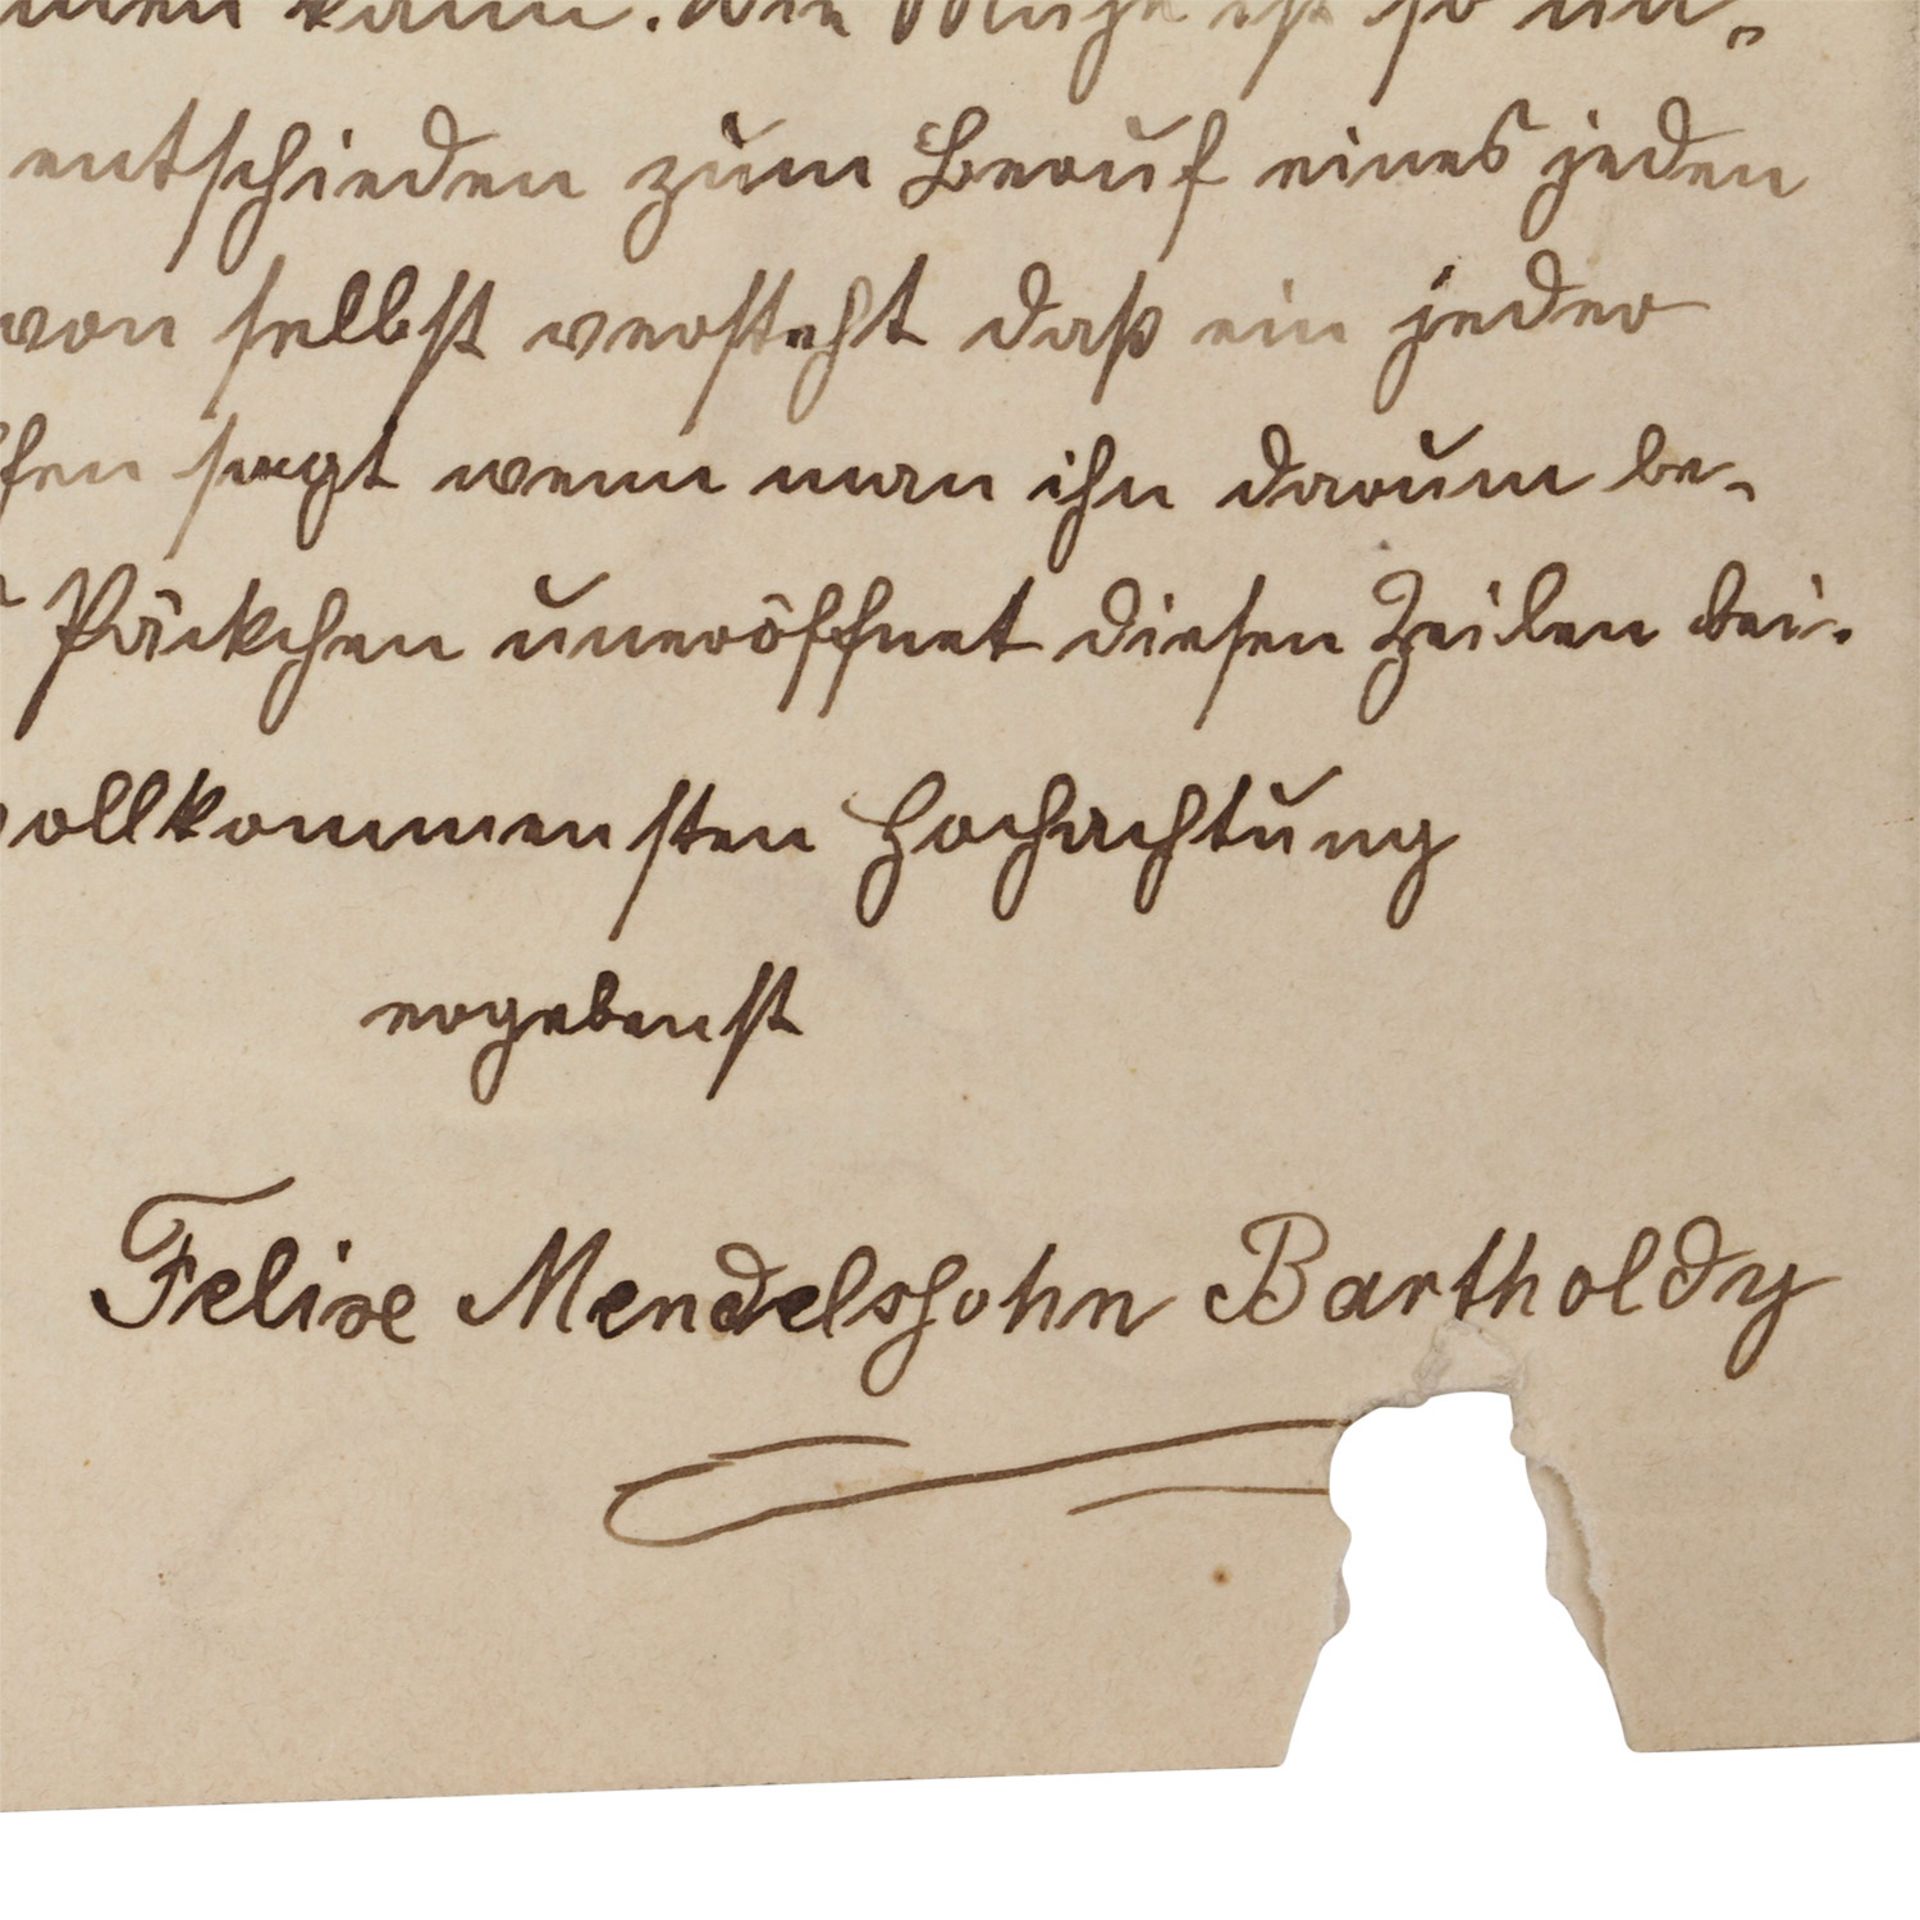 kann. Die Mühe ist so un-
entschieden zum Beruf eines jeden
von selbst versteht daß ein jeder
sagt wenn man ihn darum be-
Päckchen uneröffnet diesen Zeilen bei.
vollkommensten Hochachtung
ergebenst
Felix Mendelssohn Bartholdy